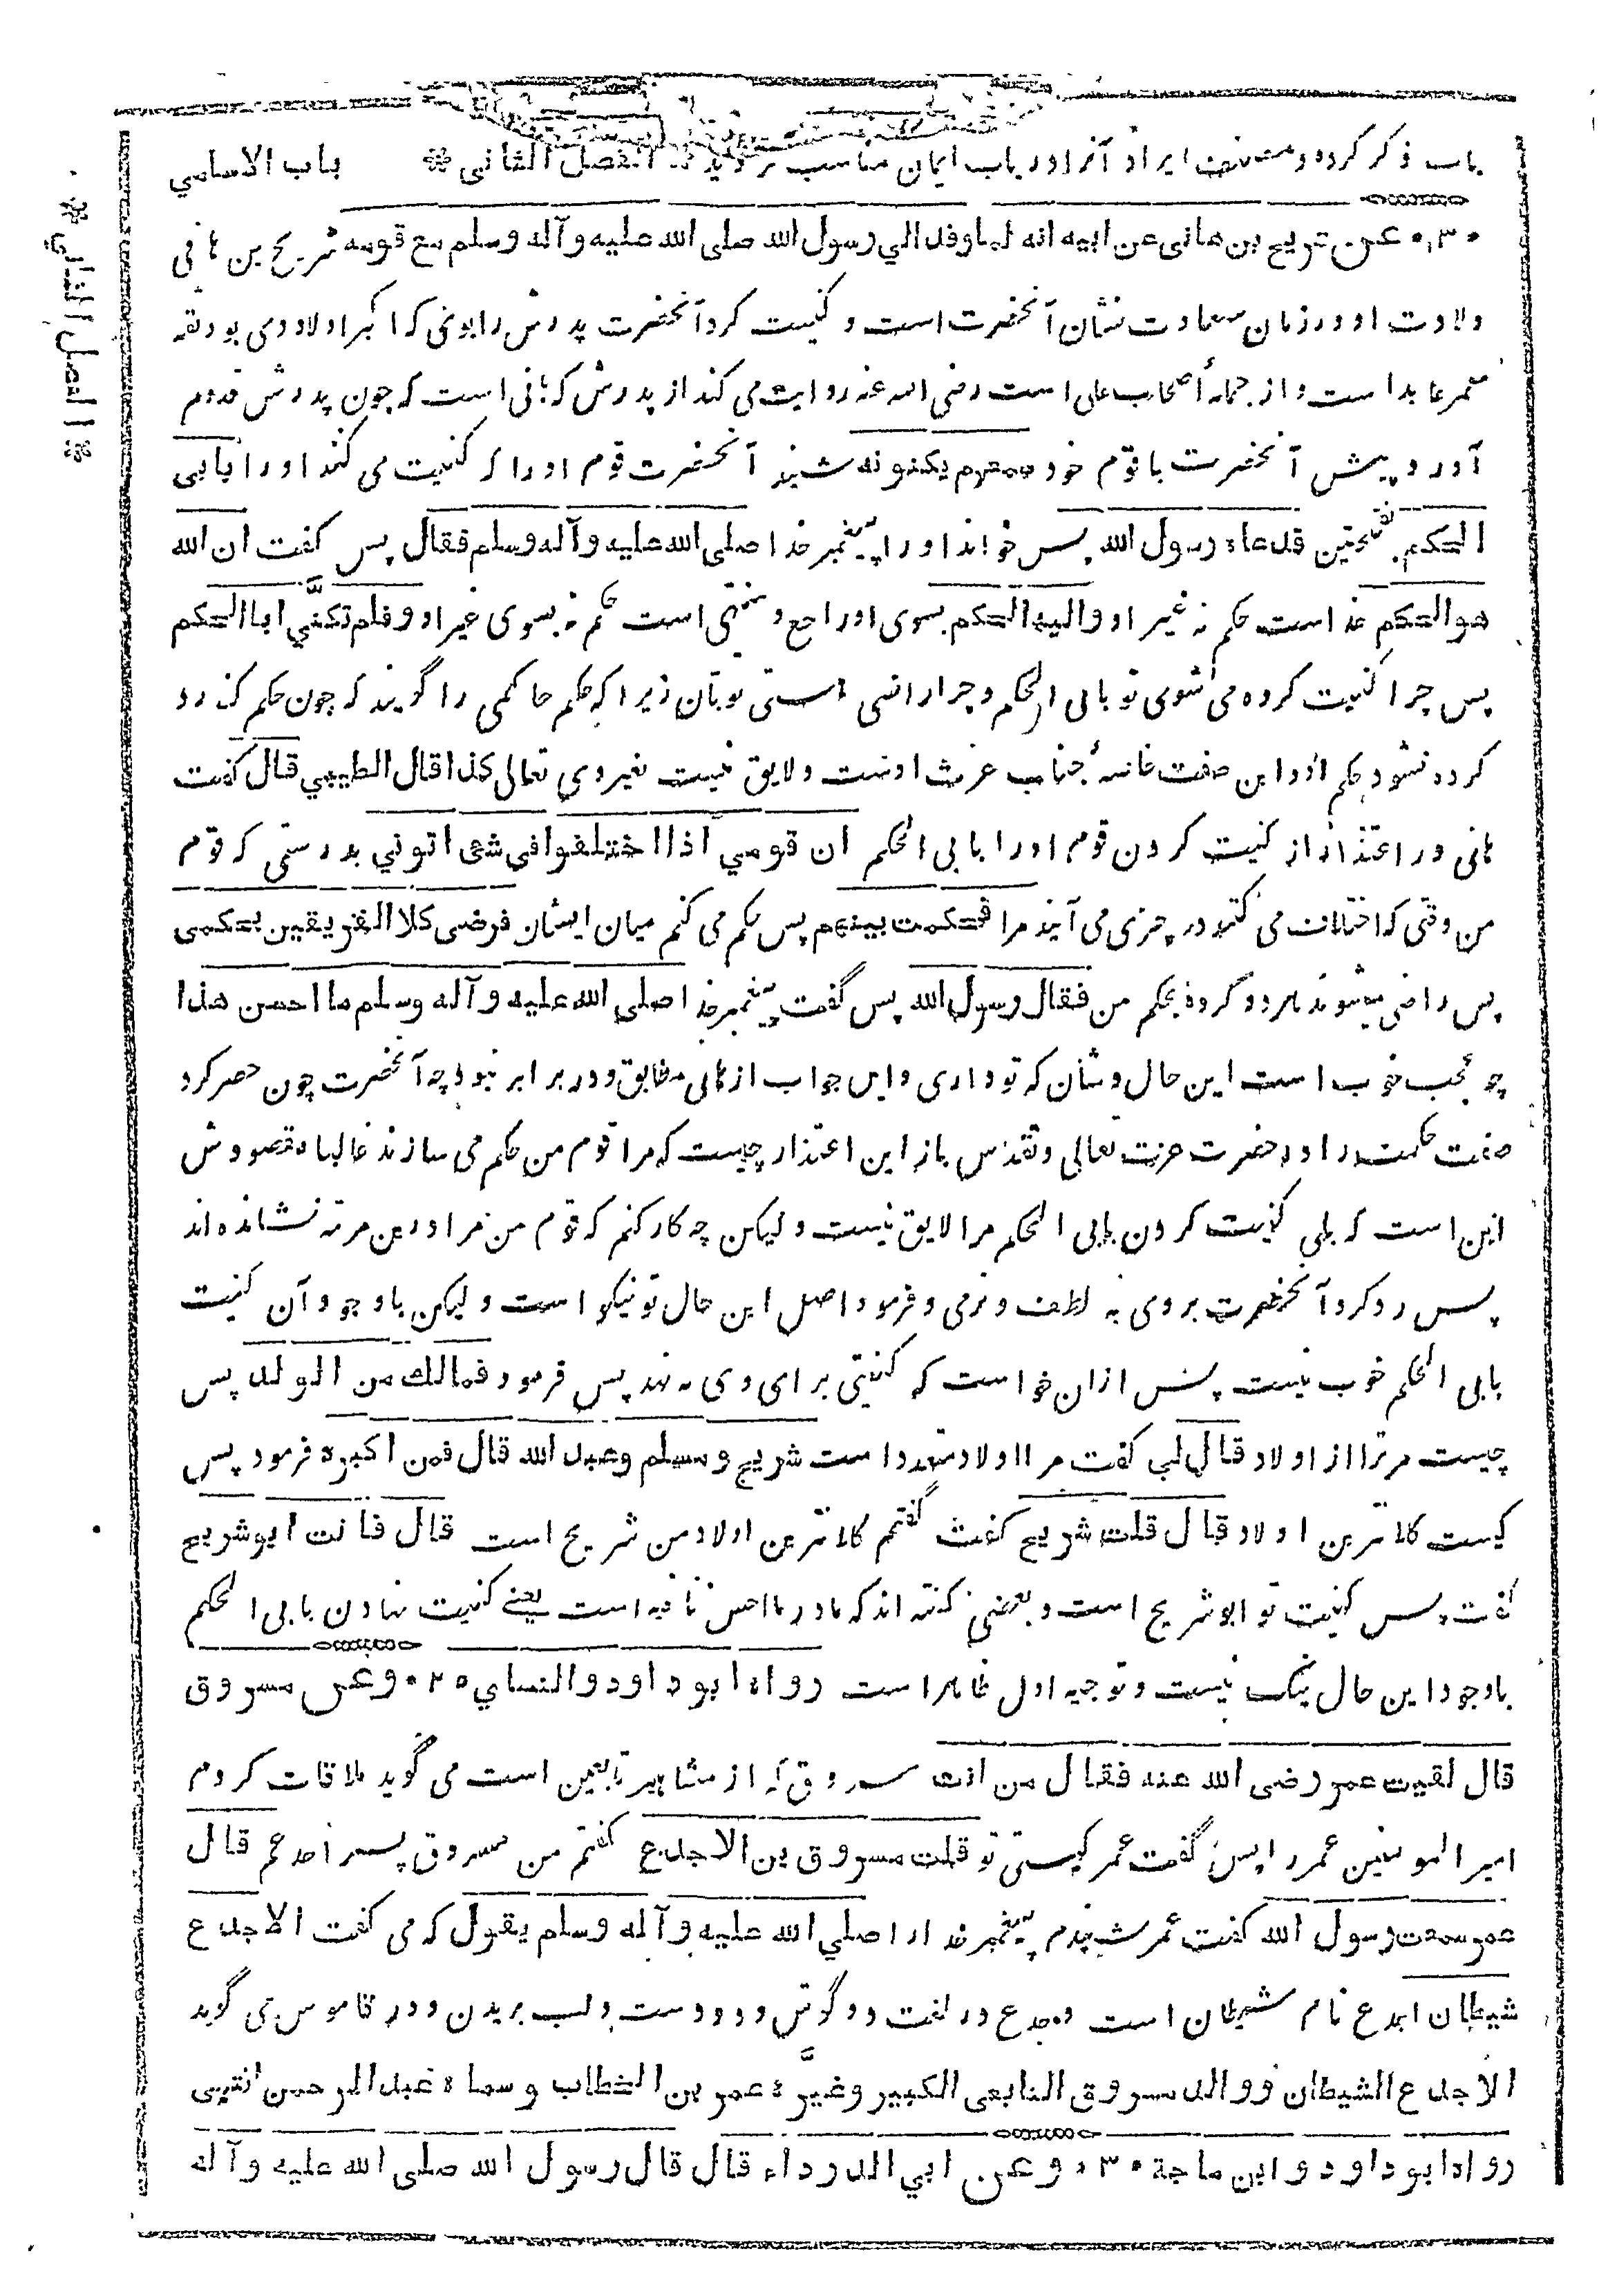 باب ذکر کرده و مصنف ایراد آنرا در باب ایمان مناسب تر دید * الفصل الثانی *
باب الاسامي
* الفصل الثاني *
عن شریح بن هانی عن ابیه انه لما وفد الي رسول الله صلی الله علیه و آله و سلم مع قومه شریح بن هانی
ولادت او در زمان سعادت نشان آنحضرت است و کنیت کرد آنحضرت پدرش را بوی که اکبر اولاد وی بود ثقه
معمر عابد است و از جملهٔ اصحاب علی است رضی الله عنه روایت می کند از پدرش که هانی است که چون پدرش قدوم
آورد پیش آنحضرت با قوم خود سمعهم یکنونه شنید آنحضرت قوم او را که کنیت می کنند او را بابی
الحکم بفتحتین فدعاه رسول الله پس خواند او را پیغمبر خدا صلی الله علیه و آله و سلم فقال پس گفت ان الله
هو الحکم خدا است حکم نه غیر او و الیه الحکم بسوی او راجع و منتهی است حکم نه بسوی غیر او و فلم تکنّی ابا الحکم
پس چرا کنیت کرده می شوی تو بابی الحکم و چرا راضی استی تو بآن زیرا که حکم حاکمی را گویند که چون حکم کند رد
کرده نشود حکم او و این صفت خاصهٔ جناب عزت اوست و لایق نیست بغیر وی تعالی کذا قال الطیبي قال گفت
هانی در اعتذار از کنیت کردن قوم او را بابی الحکم ان قومي اذا اختلفوا في شئ اتوني بدرستی که قوم
من وقتی که اختلاف می کنند در چیزی می آیند مرا فحکمت بینهم پس حکم می کنم میان ایشان فرضی کلا الفریقین بحکمی
پس راضی میشوند هر دو گروه بحکم من فقال رسول الله پس گفت پیغمبر خدا صلی الله علیه و آله و سلم ما احسن هذا
چه عجب خوب است این حال و شان که تو داری و این جواب از هانی مطابق و در برابر نبود چه آنحضرت چون حصر کرد
صفت حکمت را در حضرت عزت تعالی و تقدس باز این اعتذار چیست که مرا قوم من حکم می سازند غالبا مقصودش
این است که بلی کنیت کردن بابی الحکم مرا لایق نیست و لیکن چه کار کنم که قوم من مرا درین مرتبه نشانده اند
پس رد کرد آنحضرت بروی به لطف و نرمی و فرمود اصل این حال تو نیکو است و لیکن باوجود آن کنیت
بابی الحکم خوب نیست پس ازان خواست که کنیتی برای وی بنهد پس فرمود فمالك من الولد پس
چیست مر ترا از اولاد قال لي گفت مرا اولاد متعدد است شریح و مسلم و عبد الله قال فمن اکبرهم فرمود پس
کیست کلانترین اولاد قال قلت شریح گفت گفتم کلانترین اولاد من شریح است قال فانت ابو شریح
گفت پس کنیت تو ابو شریح است و بعضی گفته اند که ما در ما احسن نافیه است یعنے کنیت نهادن بابی الحکم
باوجود این حال نیک نیست و توجیه اول ظاهر است رواه ابو داود و النساي ٠٢٠ و عن مسروق
قال لقیت عمر رضی الله عنه فقال من انت مسروق که از مشاهیر تابعین است می گوید ملاقات کردم
امیر المومنین عمر را پس گفت عمر کیستی تو قلت مسروق بن الاجدع گفتم من مسروق پسر اجدعم قال
عمر سمعت رسول الله گفت عمر شنیدم پیغمبر خدا را صلي الله علیه و آله و سلم یقول که می گفت الاجدع
شیطان اجدع نام شیطان است و جدع در لغت دو گوش و دو دست و لب بریدن و در قاموس می گوید
الاجدع الشیطان و والد مسروق التابعی الکبیر و غیّره عمر بن الخطاب و سماه عبد الرحمن انتهی
رواه ابو داود و ابن ماجة ٠٣٠ و عن ابي الدرداء قال قال رسول الله صلی الله علیه و آله